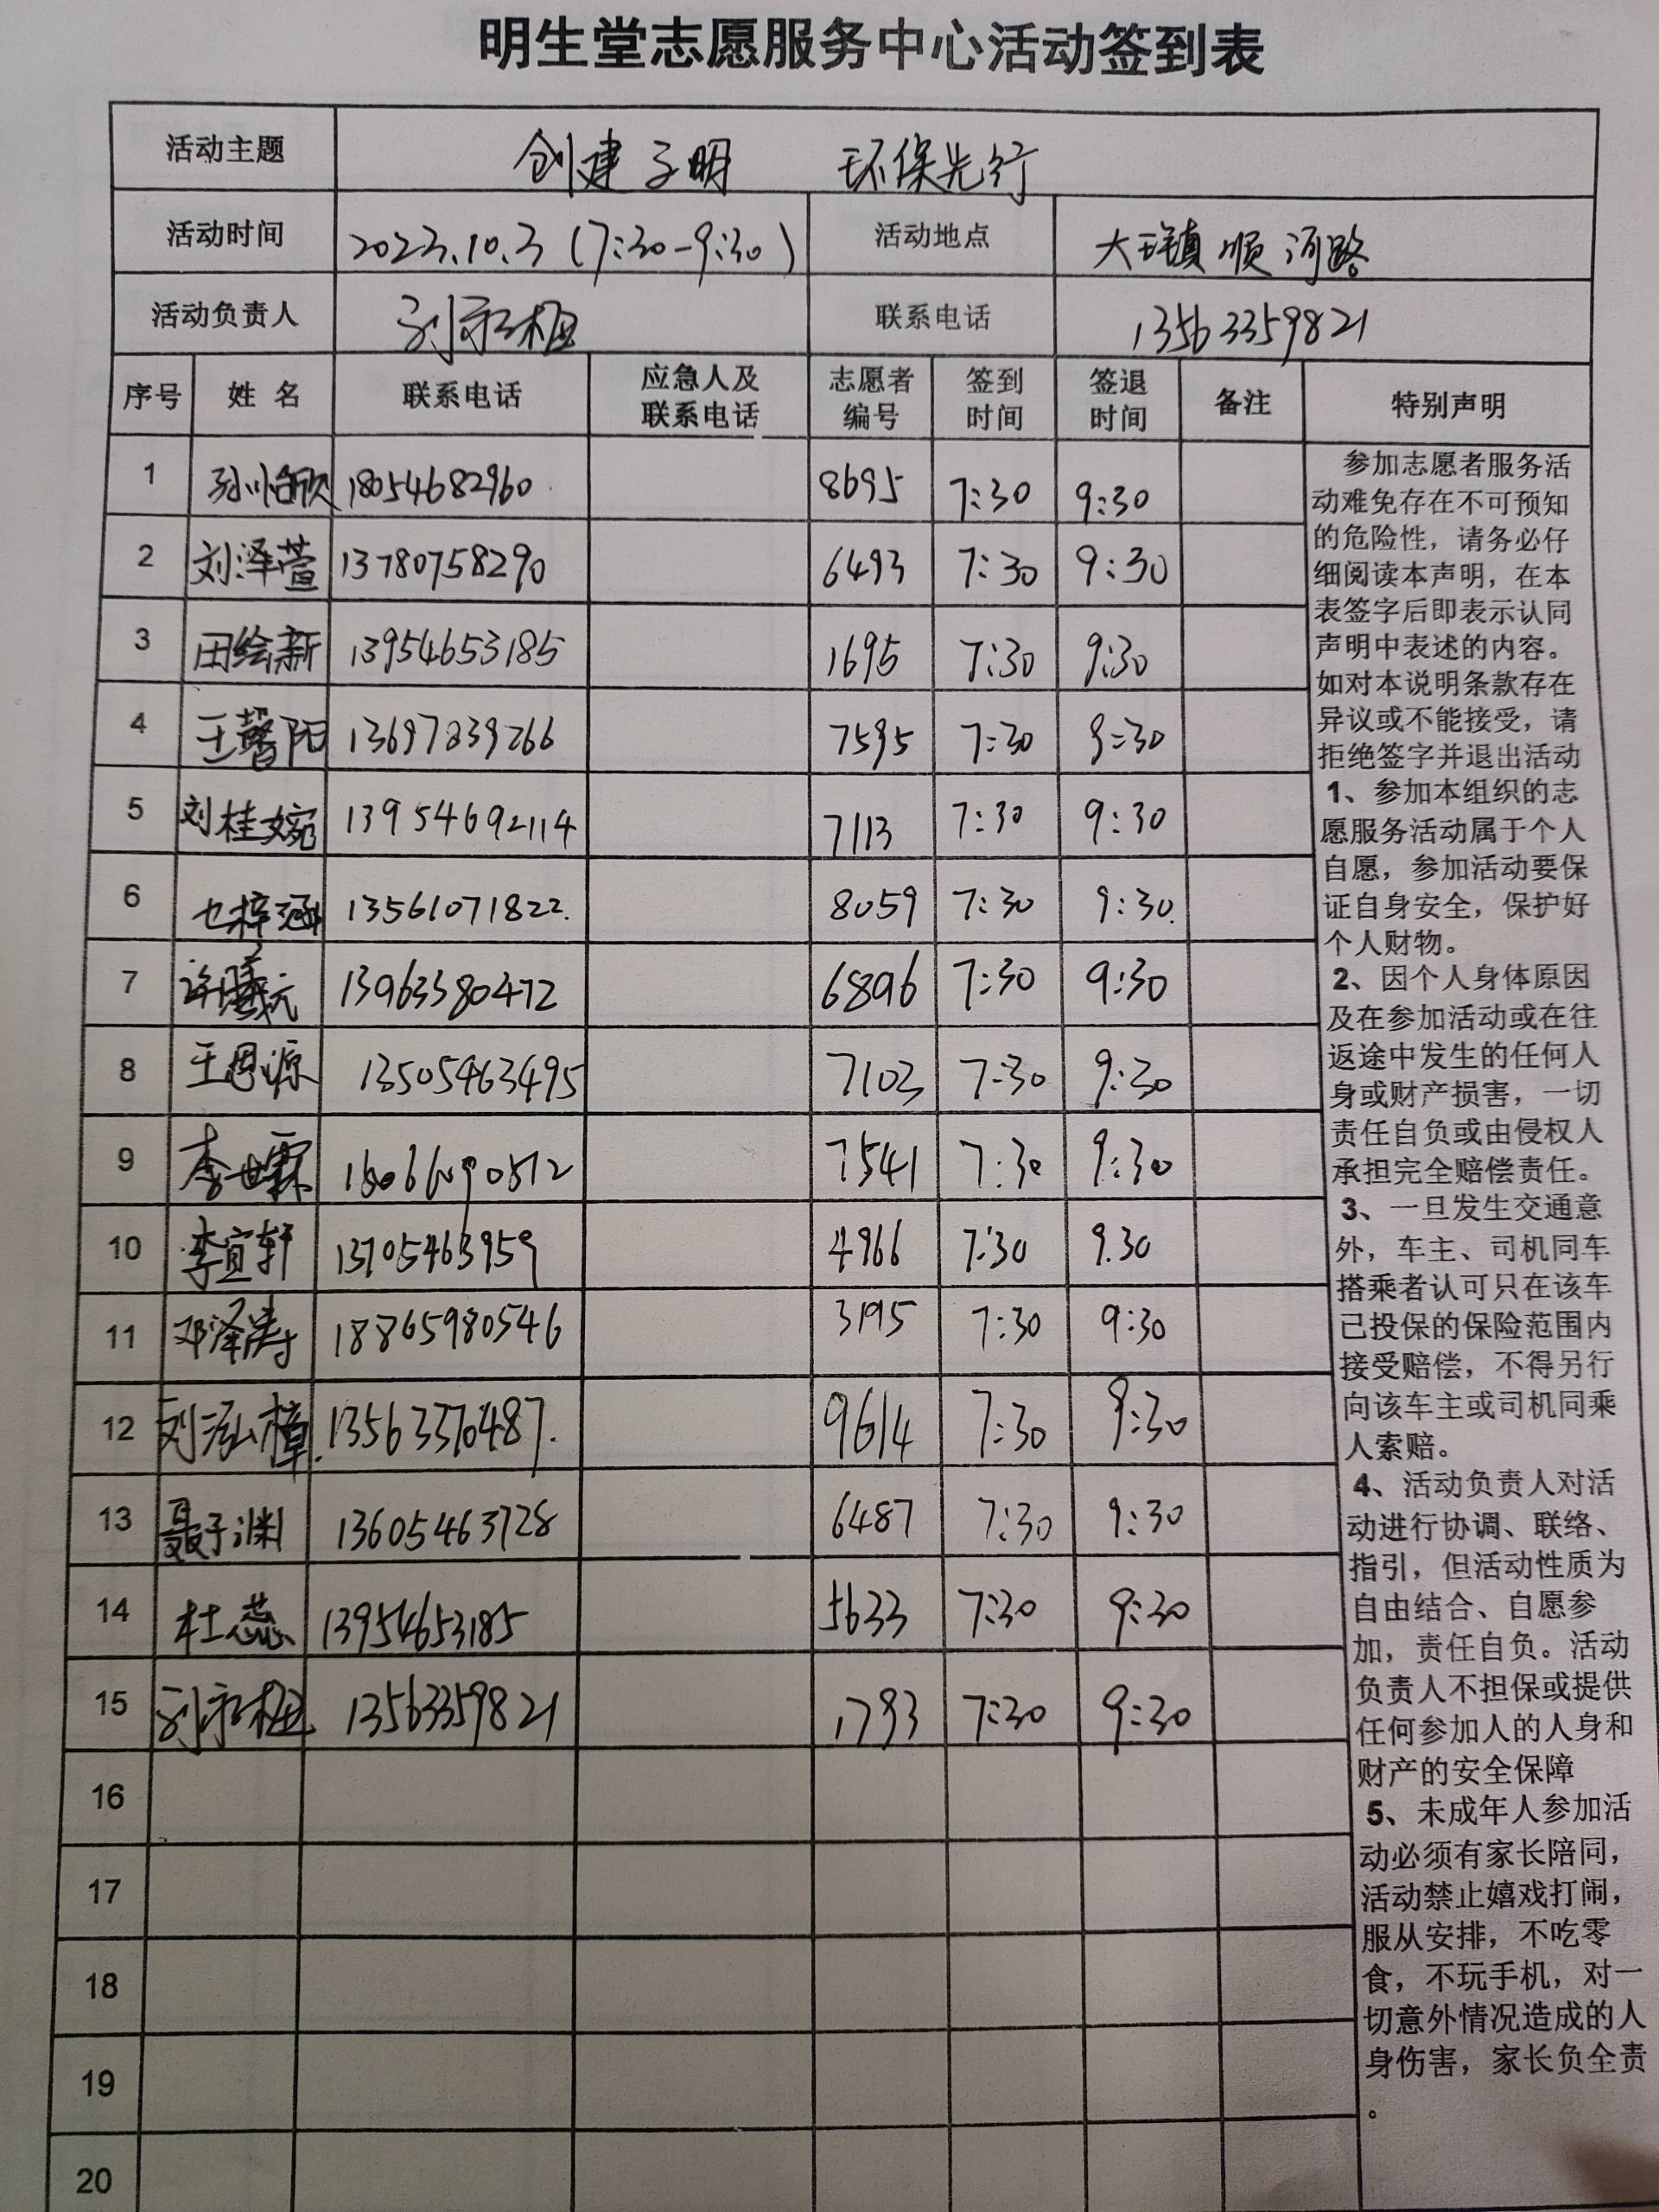 明生堂志愿服务中心活动签到表
活动主题 创建文明 环保先行
活动时间 2023.10.3 (7:30-9:30) 活动地点 大王镇顺河路
活动负责人 联系电话 13563359821
序号 姓 名 联系电话 应急人及联系电话 志愿者编号 签到时间 签退时间 备注 特别声明
1 孙怡欣 18054682960 8695 7:30 9:30
2 刘泽萱 13780758290 6493 7:30 9:30
3 田绘新 13954653185 1695 7:30 9:30
4 王馨阳 13697839266 7595 7:30 9:30
5 刘桂婉 13954692114 7113 7:30 9:30
6 梓涵 13561071822. 8059 7:30 9:30.
7 13963380472 6896 7:30 9:30
8 王思源 13505463495 7103 7:30 9:30
9 李世霖 7541 7:30 9:30
10 李宜轩 13705463959 4966 7:30 9.30
11 邓泽涛 18865980546 3195 7:30 9:30
12 刘泓樟. 13563370487. 9614 7:30 9:30
13 聂子渊 13605463728 6487 7:30 9:30
14 杜蕊 13954653185 5633 7:30 9:30
15 13563359821 1793 7:30 9:30
16
17
18
19
20
参加志愿者服务活
动难免存在不可预知
的危险性，请务必仔
细阅读本声明，在本
表签字后即表示认同
声明中表述的内容。
如对本说明条款存在
异议或不能接受，请
拒绝签字并退出活动
1、参加本组织的志
愿服务活动属于个人
自愿，参加活动要保
证自身安全，保护好
个人财物。
2、因个人身体原因
及在参加活动或在往
返途中发生的任何人
身或财产损害，一切
责任自负或由侵权人
承担完全赔偿责任。
3、一旦发生交通意
外，车主、司机同车
搭乘者认可只在该车
已投保的保险范围内
接受赔偿，不得另行
向该车主或司机同乘
人索赔。
4、活动负责人对活
动进行协调、联络、
指引，但活动性质为
自由结合、自愿参
加，责任自负。活动
负责人不担保或提供
任何参加人的人身和
财产的安全保障
5、未成年人参加活
动必须有家长陪同，
活动禁止嬉戏打闹，
服从安排，不吃零
食，不玩手机，对一
切意外情况造成的人
身伤害，家长负全责
。